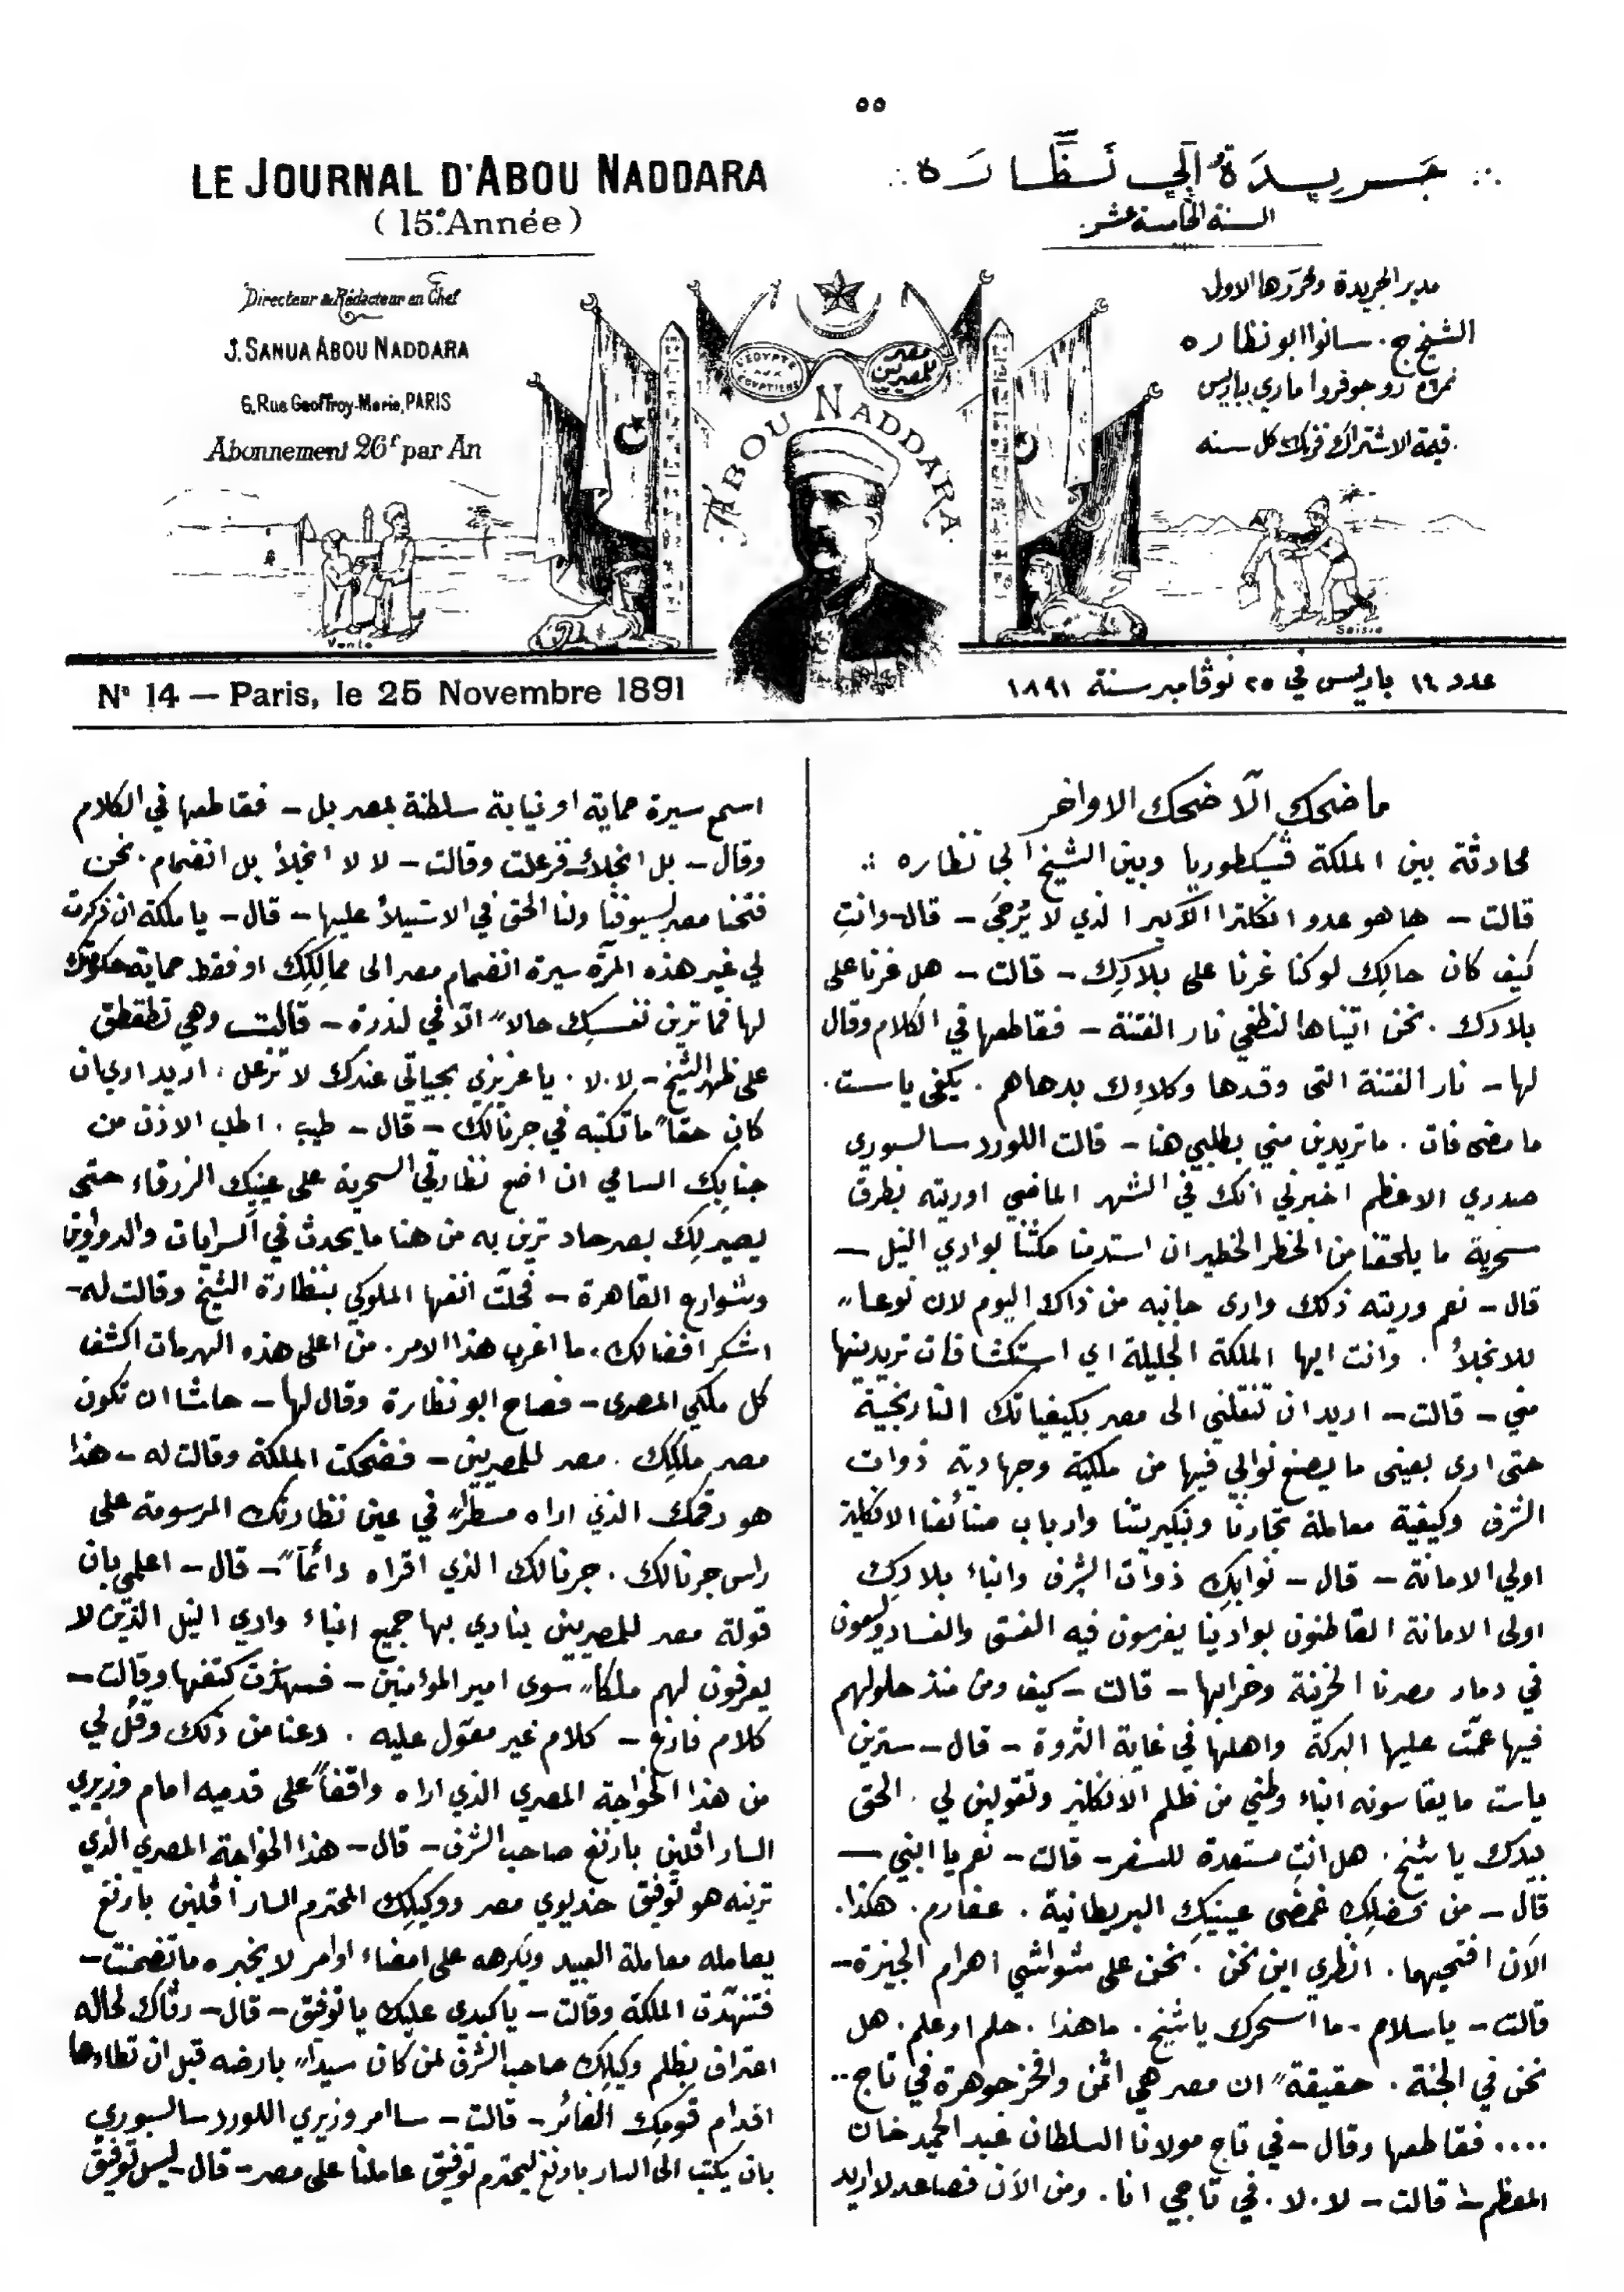 ٥٥
LE JOURNAL D'ABOU NADDARA
(15e Année)
جَرِيدَةُ اَبِي نَظَّارَه
السنة الخامسة عشر
Directeur & Rédacteur en Chef
J. SANUA ABOU NADDARA
6, Rue Geoffroy-Marie, PARIS
Abonnement 26f par An
مدير الجريدة ومحررها الاول
الشيخ ج. سانوا ابو نظاره
نمرة ٦ رو جوفروا ماري بباريس
قيمة الاشتراك فرنك كل سنه
L'EGYPTE AUX EGYPTIENS
مصر للمصريين
ABOU NADDARA
Vente
Saisie
No 14 — Paris, le 25 Novembre 1891
عدد ١٤ باريس في ٢٥ نوڤامبر سنة ١٨٩١
ما ضحك الّا ضحك الاواخر
محادثة بين الملكة ڤيكطوريا وبين الشيخ ابي نظاره
قالت – ها هو عدو انكلترا الاكبر الذي لا يُرجَى – قال – وانتِ
كيف كان حالِك لو كنا غرنا على بلادِك – قالت – هل غرنا على
بلادك . نحن اتيناها لنطفي نار الفتنة – فقاطعها في الكلام وقال
لها – نار الفتنة التى وقدها وكلاؤك بدهاهم . يكفى ياست .
ما مضى فات . ما تريدين مني بطلبي هنا – قالت اللورد سالسبوري
صدري الاعظم اخبرني انك في الشهر الماضي اوريته بطرق
سحرية ما يلحقنا من الخطر الخطير ان استدمنا مكثنا بوادي النيل –
قال – نعم وريته ذلك وارى جانبه من ذاك اليوم لان نوعاً
للانجلاء . وانت ايها الملكة الجليلة اي استكشافات تريدينها
مني – قالت – اريد ان تنقلني الى مصر بكيفياتك النارنجية
حتى ارى بعينى ما يصنع نوابي فيها من ملكية وجهادية ذوات
الشرف وكيفية معاملة تجارنا وبنكيريتنا وارباب صنائعنا الانكليز
اولي الامانة – قال – نوابِك ذوات الشرف وابناء بلادِك
اولى الامانة القاطنون بوادينا يغرسون فيه الفسق والفساد ويسعون
في دمار مصرنا الحزينة وخرابها – قالت – كيف ومن منذ حلولهم
فيها عمّت عليها البركة واهلها في غاية الثروة – قال – سترين
ياست ما يقاسونه ابناء وطني من ظلم الانكليز وتقولين لي . الحق
بيدك يا شيخ . هل انتِ مستعدة للسفر – قالت – نعم يا ابني –
قال – من فضلِك غمضى عينيكِ البريطانية . عفارم . هكذا .
الآن افتحيهما . انظري اين نحن . نحن على شواشي اهرام الجيزة –
قالت – يا سلام . ما اسحرك يا شيخ . ما هذا . حلم او علم . هل
نحن في الجنة . حقيقةً ان مصر هي اثمن وافخر جوهرة في تاج ..
.... فقاطعها وقال – في تاج مولانا السلطان عبد الحميد خان
المعظم – قالت – لا . لا . في تاجي انا . ومن الآن فصاعد لا اريد
اسمع سيرة حماية او نيابة سلطنة بمصر بل – فقاطعها في الكلام
وقال – بل انجلاء – فزعلت وقالت – لا لا انجلاء بل انضمام . نحن
فتحنا مصر بسيوفنا ولنا الحق في الاستيلاء عليها – قال – يا ملكة ان ذكرت
لي غير هذه المرّة سيرة انضمام مصر الى ممالِكِك او فقط حماية حكومتك
لها فما ترين نفسِك حالاً الّا في لندرة – قالت وهي تطقطق
على ظهر الشيخ – لا . لا . يا عزيزي بحياتي عندك لا تزعل . اريد ارى ان
كان حقاً ما تكتبه في جرنالك – قال – طيب . اطلب الاذن من
جنابِك السامي ان اضع نظارتي السحرية على عينِيك الزرقاء حتى
يصير لِك بصر حاد ترين به من هنا ما يحدث في السرايات والدواوين
وشوارع القاهرة – فحلّت انفها الملوكي بنظارة الشيخ وقالت له –
اشكر افضالك . ما اغرب هذا الامر . من اعلى هذه الهرمات اكشف
كل ملكي المصرى – فصاح ابو نظارة وقال لها – حاشا ان تكون
مصر ملكِك . مصر للمصريين – فضحكت الملكة وقالت له – هذا
هو رقمك الذي اراه مسطراً في عين نظارتك المرسومة على
راس جرنالك . جرنالك الذي اقراه دائماً – قال – اعلمي بان
قولة مصر للمصريين ينادي بها جميع ابناء وادي النيل الذين لا
يعرفون لهم ملكاً سوى امير المؤمنين – فهزت كتفها وقالت –
كلام فارغ – كلام غير معوّل عليه . دعنا من ذلك وقُل لي
من هذا الخواجة المصري الذي اراه واقفاً على قدميه امام وزيري
السار اڤلين بارنغ صاحب الشرف – قال – هذا الخواجة المصري الذي
ترينه هو توفيق خديوي مصر ووكيلِك المحترم السار اڤلين بارنغ
يعامله معاملة العبيد ويكرهه على امضاء اوامر لا يخبره ما تضمنت –
فتنهّدت الملكة وقالت – يا كبدي عليك يا توفيق – قال – رثاك لحاله
اعتراف بظلم وكيلِك صاحب الشرف لمن كان سيداً بارضه قبل ان تطاءها
اقدام قومِك الغائر – قالت – سامر وزيري اللورد سالسبوري
بان يكتب الى السار بارنغ ليحترم توفيق عاملنا على مصر – قال – ليس توفيق